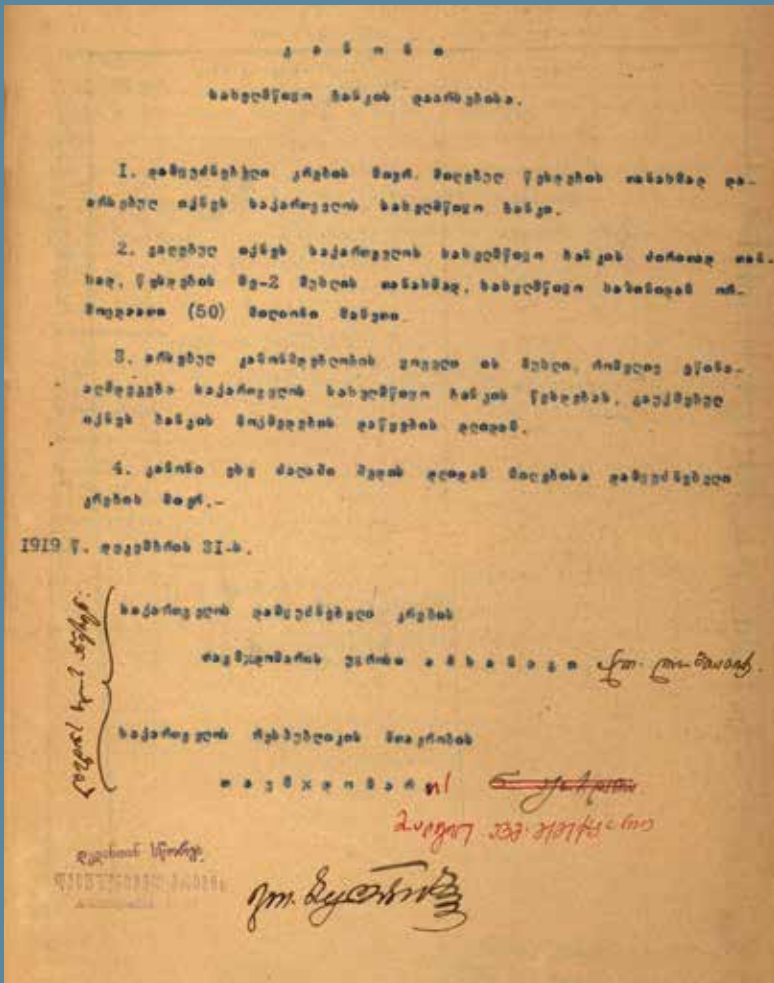 კ ა ნ ო ნ ი
სახელმწიფო ბანკის დაარსებისა.
I. დამფუძნებელი კრების მიერ მიღებულ წესდების თანახმად და-
არსებულ იქნეს საქართველოს სახელმწიფო ბანკი.
2. გაღებულ იქნეს საქართველოს სახელმწიფო ბანკის ძირითად თან-
ხად, წესდების მე-2 მუხლის თანახმად, სახელმწიფო ხაზინიდან ორ-
მოცდაათი (50) მილიონი მანეთი.
3. არსებულ კანონმდებლობის ყოველი ის მუხლი, რომელიც ეწინა-
აღმდეგება საქართველოს სახელმწიფო ბანკის წესდებას, გაუქმებულ
იქნეს ბანკის მოქმედების დაწყების დღიდან.
4. კანონი ესე ძალაში შედის დღიდან მიღებისა დამფუძნებელი
კრების მიერ.-
1919 წ. დეკემბრის 31-ს.
საქართველოს დამფუძნებელი კრების
თავმჯდომარის
საქართველოს რესპუბლიკის მთავრობის
თ ა ვ მ ჯ დ ო მ ა რ ი ს
დედანთან სწორია